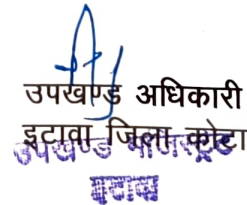 उपखण्ड अधिकारी
इटावा जिला कोटा
उपखण्ड मजिस्ट्रेट
इटावा